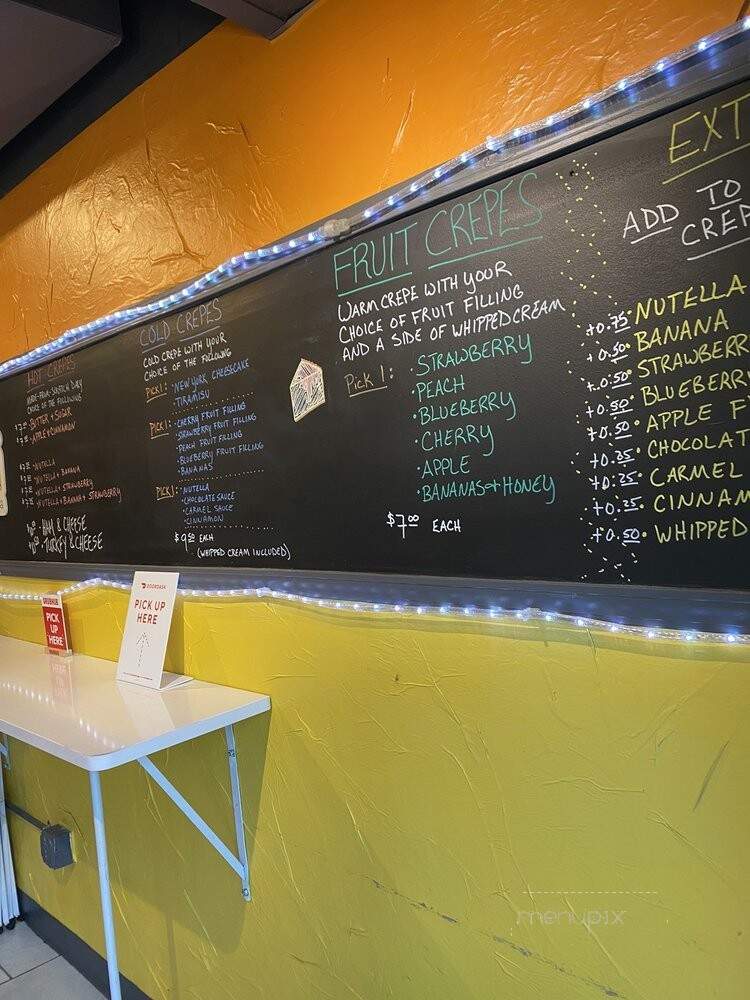 HOT CREPES
MADE-FROM-SCRATCH DAILY
CHOICE OF THE FOLLOWING
BUTTER + SUGAR
APPLE + CINNAMON
• NUTELLA
• NUTELLA + BANANA
• NUTELLA + STRAWBERRY
• NUTELLA + BANANA + STRAWBERRY
• HAM & CHEESE
• TURKEY & CHEESE
COLD CREPES
COLD CREPE WITH YOUR
CHOICE OF THE FOLLOWING
PICK 1: • NEW YORK CHEESECAKE
• TIRAMISU
PICK 1: • CHERRY FRUIT FILLING
• STRAWBERRY FRUIT FILLING
• PEACH FRUIT FILLING
• BLUEBERRY FRUIT FILLING
• BANANAS
PICK 1: • NUTELLA
• CHOCOLATE SAUCE
• CARMEL SAUCE
• CINNAMON
$9.50 EACH
(WHIPPED CREAM INCLUDED)
FRUIT CREPES
WARM CREPE WITH YOUR
CHOICE OF FRUIT FILLING
AND A SIDE OF WHIPPED CREAM
Pick 1: • STRAWBERRY
• PEACH
• BLUEBERRY
• CHERRY
• APPLE
• BANANAS + HONEY
$7.00 EACH
EXT
ADD TO
CREP
+0.75 • NUTELLA
+0.50 • BANANA
+0.50 • STRAWBERR
+0.50 • BLUEBERRY
+0.50 • APPLE F
+0.25 • CHOCOLAT
+0.25 • CARMEL
+0.25 • CINNAM
+0.50 • WHIPPED
GRUBHUB
PICK
UP
HERE
DOORDASH
PICK UP
HERE
menupix